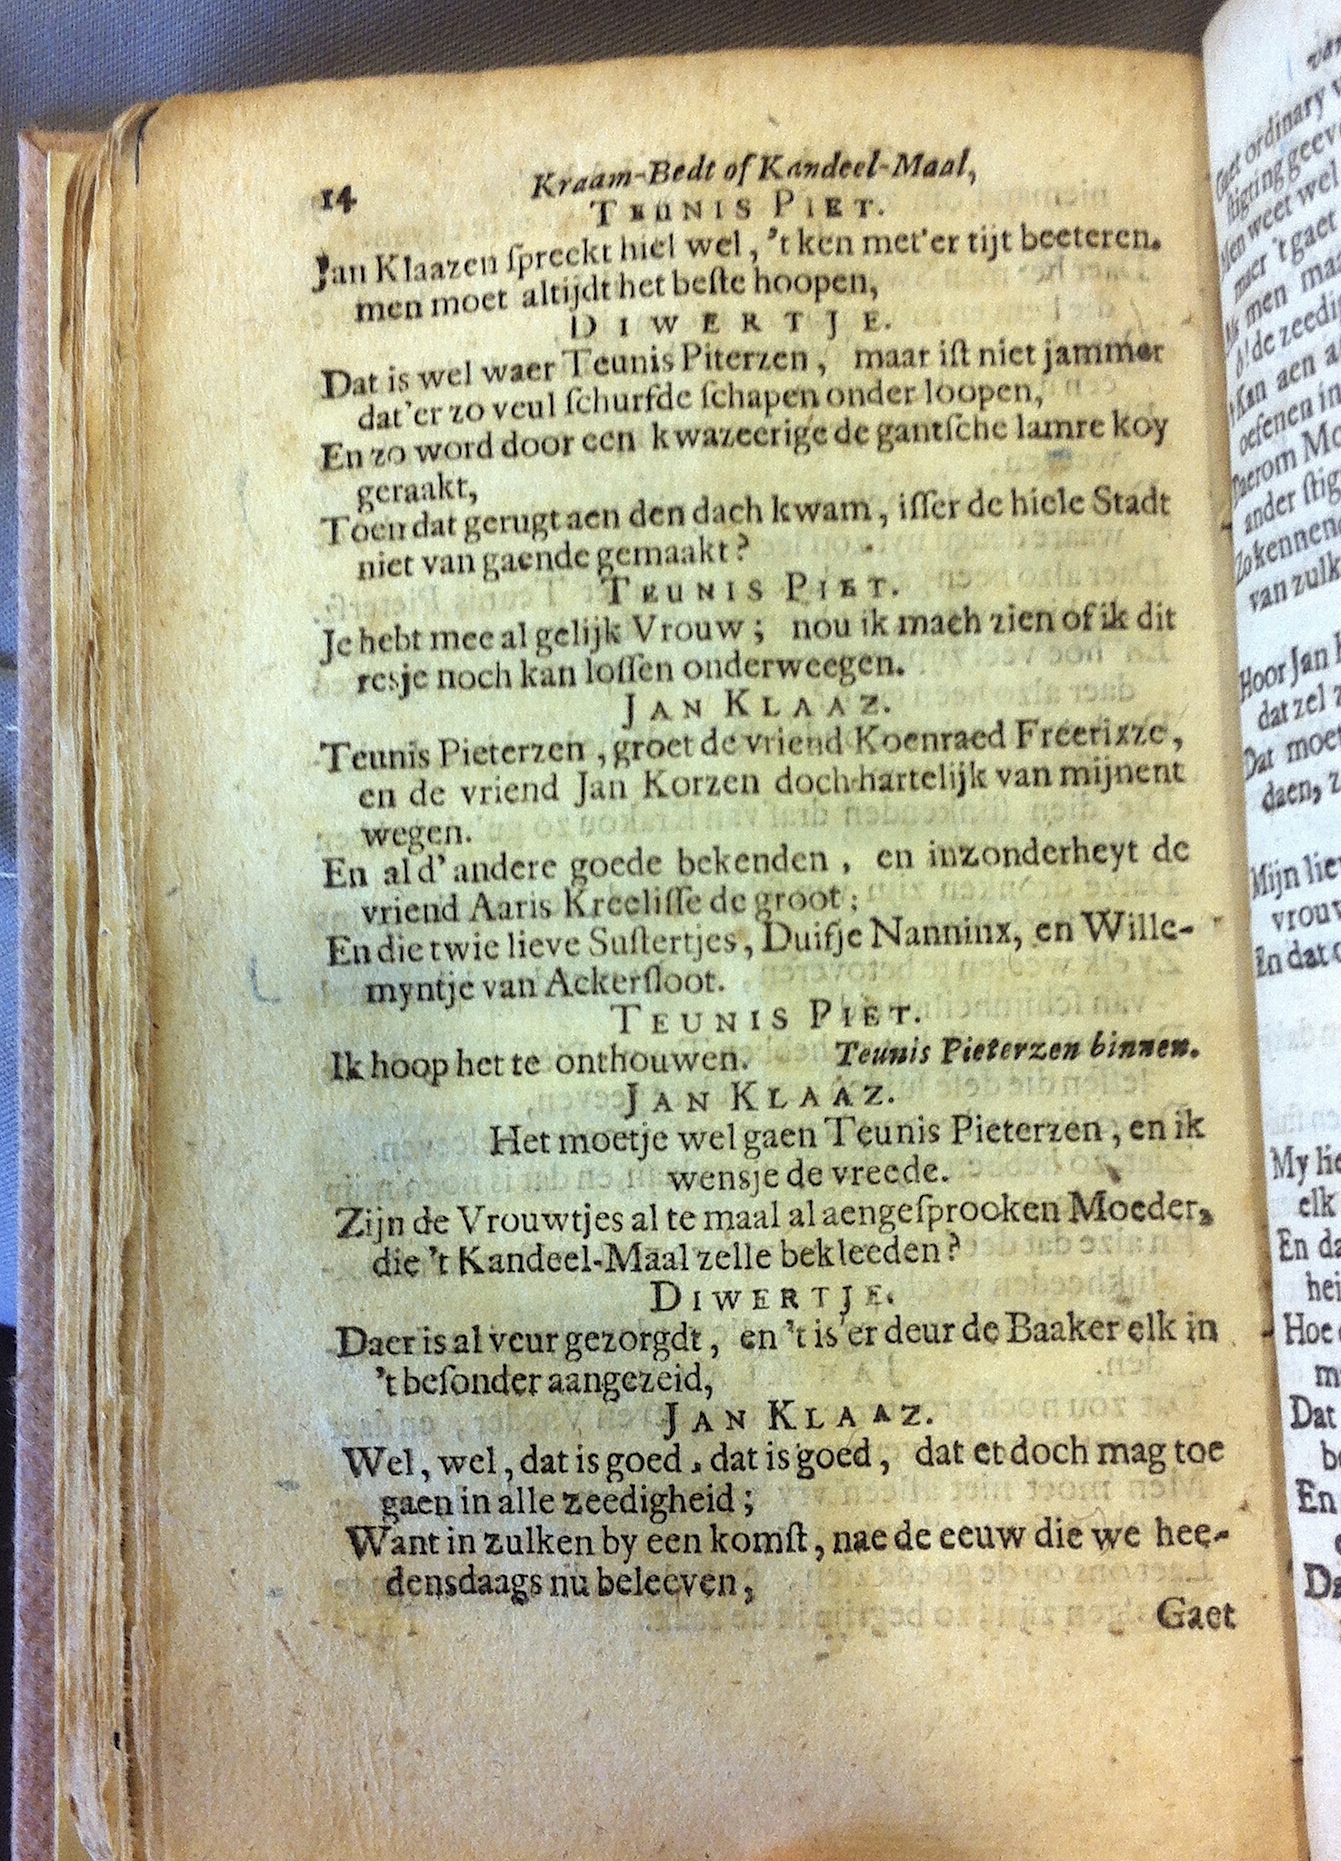 14 Kraam-Bedt of Kandeel-Maal,
TEUNIS PIET.
Jan Klaazen ſpreekt hiel wel, 't ken met'er tijt beeteren.
men moet altijdt het beſte hoopen,
DIWERTJE.
Dat is wel waer Teunis Piterzen, maar iſt niet jammer
dat'er zo veul ſchurfde ſchapen onder loopen,
En zo word door een kwazeerige de gantſche lamre koy
geraakt,
Toen dat gerugt aen den dach kwam, iſſer de hiele Stadt
niet van gaende gemaakt?
TEUNIS PIET.
Je hebt mee al gelijk Vrouw; nou ik mach zien of ik dit
resje noch kan loſſen onderweegen.
JAN KLAAZ.
Teunis Pieterzen, groet de vriend Koenraed Freerixze,
en de vriend Jan Korzen doch hartelijk van mijnent
wegen.
En al d'andere goede bekenden, en inzonderheyt de
vriend Aaris Kreeliſſe de groot;
En die twie lieve Suſtertjes, Duifje Nanninx, en Wille-
myntje van Ackerſloot.
TEUNIS PIET.
Ik hoop het te onthouwen. Teunis Pieterzen binnen.
JAN KLAAZ.
Het moetje wel gaen Teunis Pieterzen, en ik
wensje de vreede.
Zijn de Vrouwtjes al te maal al aengeſprooken Moeder,
die 't Kandeel-Maal zelle bekleeden?
DIWERTJE.
Daer is al veur gezorgdt, en 't is'er deur de Baaker elk in
't beſonder aangezeid,
JAN KLAAZ.
Wel, wel, dat is goed, dat is goed, dat et doch mag toe
gaen in alle zeedigheid;
Want in zulken by een komſt, nae de eeuw die we hee-
densdaags nu beleeven,
Gaet
Gaet ordinary
ſtigting geev
Men weet wel
maer 't gaet
men maa
ô! de zeedi
Kan aen a
oefenen in
Daerom Mo
ander ſtig
Zo kennen
van zulk
Hoor Jan
dat zel
Dat moet
daen,
Mijn lie
vrouw
En dat
My lie
elk
En da
hei
Hoe
m
Dat
be
En
Da